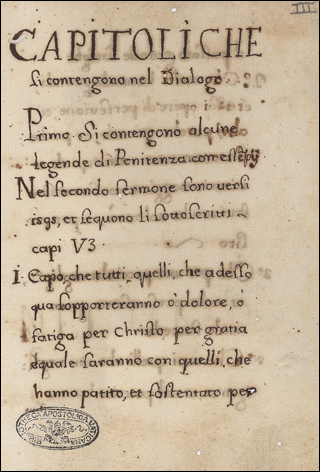 III
CAPITOLI CHE
si contengono nel Dialogo.
Primo Si contengono alcune
legende di Penitenza con essẽpij
Nel secondo sermone sono versi
et sequono li sottoscritti
capi V3
1. Capo, che tutti quelli, che adesso
qua sopporteranno ò dolore, o
fatiga per Christo, per gratia
equale saranno con quelli, che
hanno patito, et sostentato per
BIBLIOTHECA APOSTOLICA VATICANA